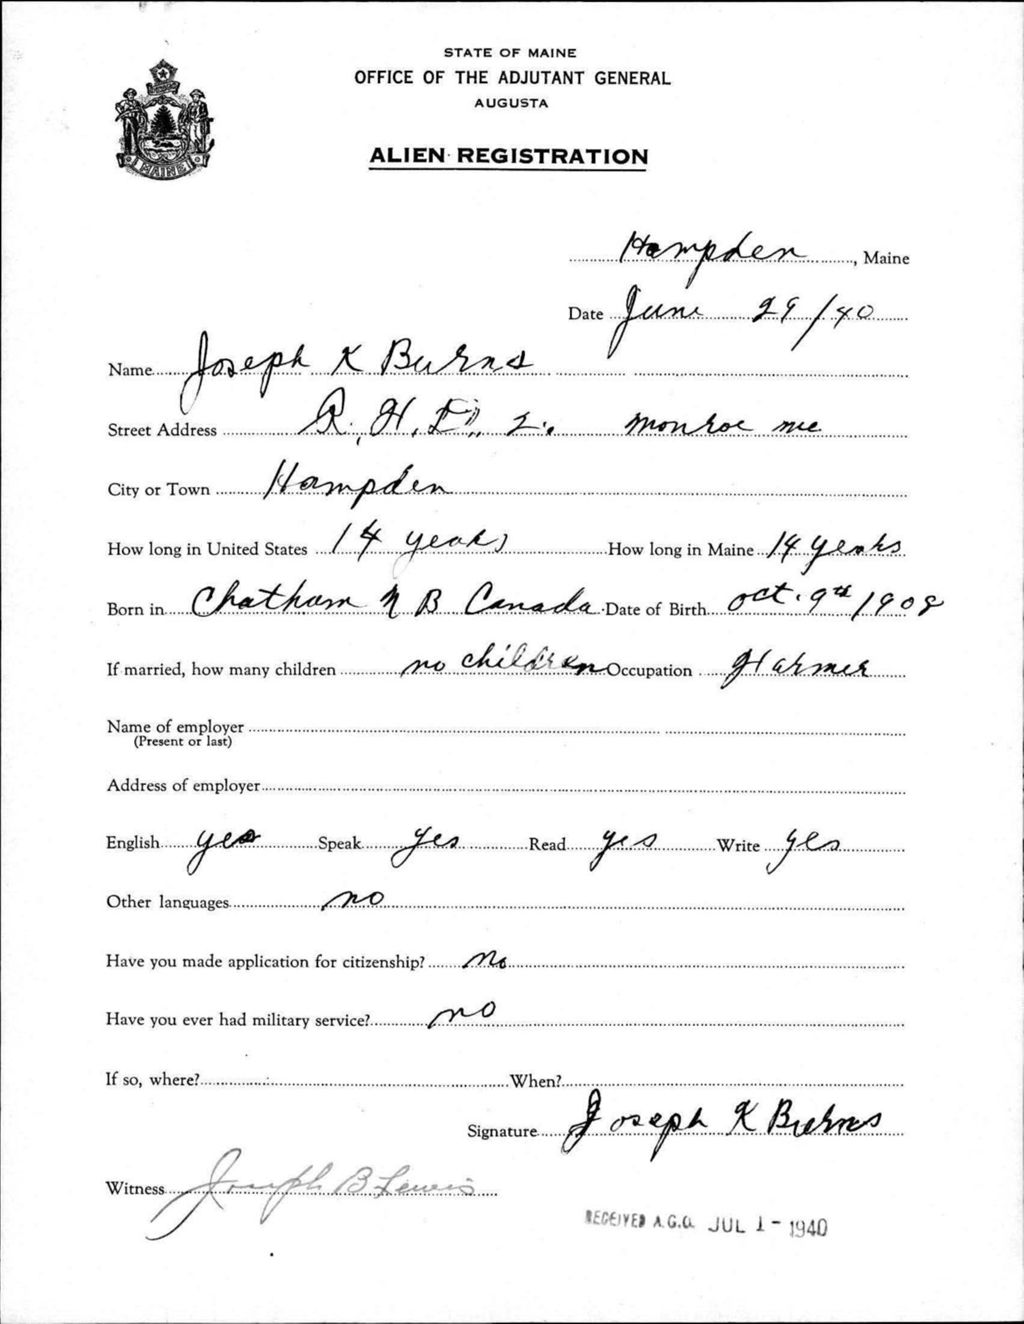 STATE OF MAINE
OFFICE OF THE ADJUTANT GENERAL
AUGUSTA
ALIEN REGISTRATION
MAINE
Hampden, Maine
Date June 29/40
Name Joseph K Burns
Street Address R. F. D. 2. Monroe me
City or Town Hampden
How long in United States 14 years How long in Maine 14 years
Born in Chatham N B Canada Date of Birth oct. 9th 1908
If married, how many children no children Occupation Farmer
Name of employer
(Present or last)
Address of employer
English yes Speak yes Read yes Write yes
Other languages no
Have you made application for citizenship? No
Have you ever had military service? no
If so, where? When?
Signature Joseph K Burns
Witness Joseph B Lewis
RECEIVED A.G.O. JUL 1 - 1940